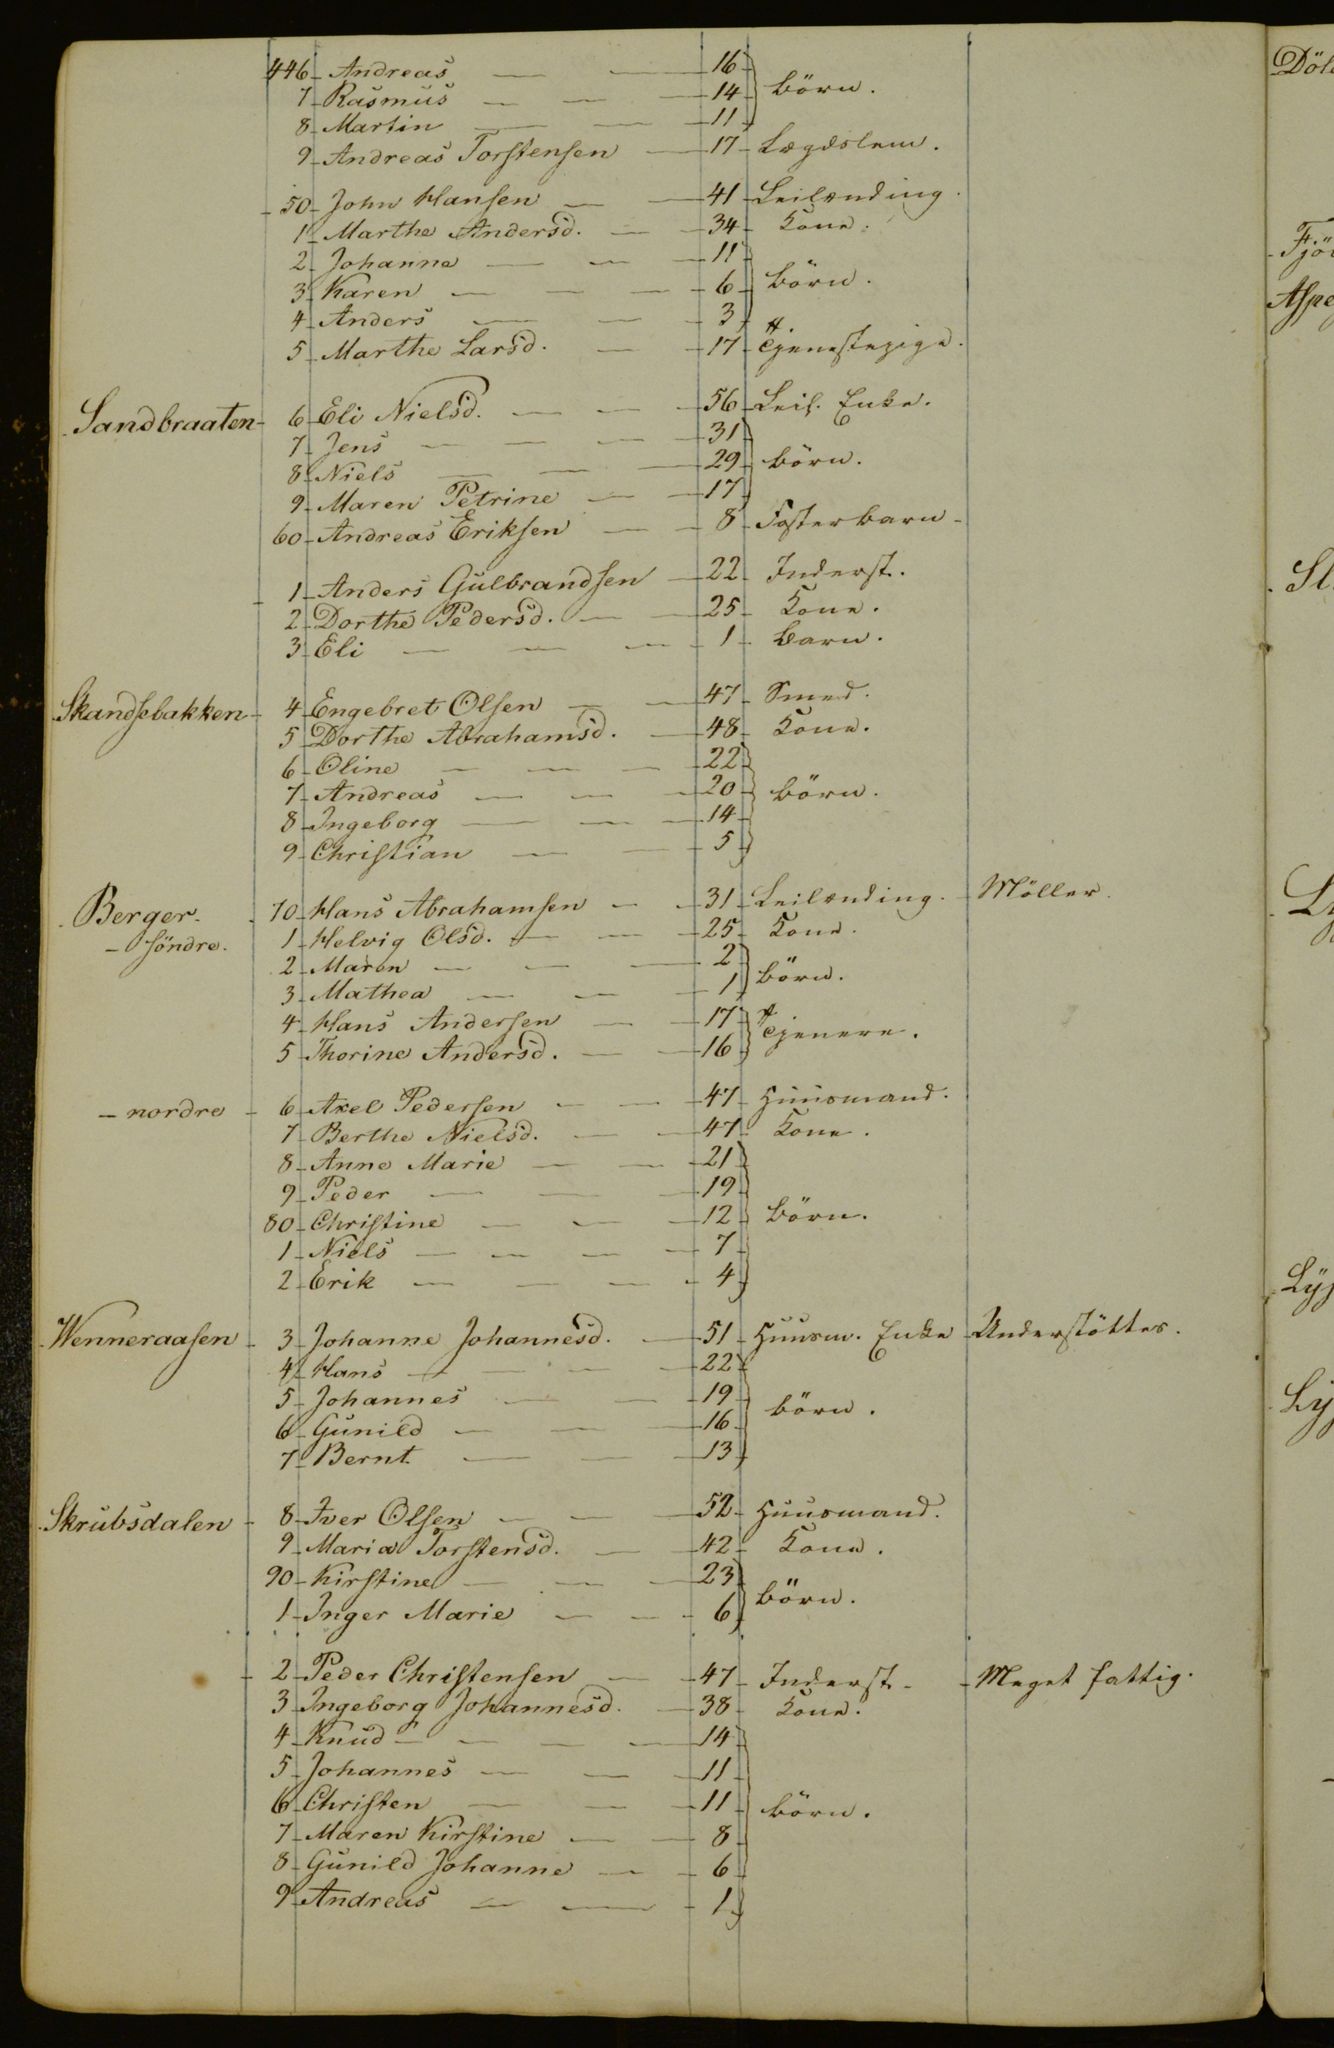 446 Andreas — — 16
7 Rasmus — — — 14 Börn.
8 Martin — — — 11
9 Andreas Torstensen — 17 Lægdslem.
50 John Hansen — — 41 Leilending.
1 Marthe Andersd. — — 34 Kone.
2 Johanne — — — 11
3 Karen — — — 6 Börn.
4 Anders — — — 3
5 Marthe Larsd. — — 17 Tjenestepige.
Sandbraaten 6 Eli Nielsd. — — 56 Leil. Enke.
7 Jens — — — 31
8 Niels — — — 29 Börn.
9 Maren Petrine — — 17
60 Andreas Eriksen — — 8 Fosterbarn
1 Anders Gulbrandsen — 22 Inderst.
2 Dorthe Pedersd. — — 25 Kone.
3 Eli — — — 1 Barn.
Skandsebakken 4 Engebret Olsen — — 47 Smed.
5 Dorthe Abrahamsd. — 48 Kone.
6 Oline — — — 22
7 Andreas — — — 20 Börn.
8 Ingeborg — — — 14
9 Christian — — 5
Berger 70 Hans Abrahamsen — — 31 Leilending. Möller.
— söndre. 1 Helvig Olsd. — — — 25 Kone.
2 Maren — — — 2
3 Mathea — — — 1 Börn.
4 Hans Andersen — — 17
5 Thorine Andersd. — — 16 Tjenere.
— nordre 6 Axel Pedersen — — 47 Huusmand.
7 Berthe Nielsd. — — 47 Kone.
8 Anne Marie — — 21
9 Peder — — — 19
80 Christine — — — 12 Börn.
1 Niels — — — — 7
2 Erik — — — — 4
Wenneraasen 3 Johanne Johannesd. — 51 Huusm. Enke Understöttes.
4 Hans — — — — 22
5 Johannes — — 19
6 Gunild — — — 16 Börn.
7 Bernt — — — 13
Skrubsdalen 8 Iver Olsen — — — 52 Huusmand.
9 Maria Torstensd. — 42 Kone.
90 Kirstine — — — 23
1 Inger Marie — — — 6 Börn.
2 Peder Christensen — — 47 Inderst. Meget fattig.
3 Ingeborg Johannesd. — 38 Kone.
4 Knud — — — — 14
5 Johannes — — — 11
6 Christen — — — 11 Börn.
7 Maren Kirstine — — 8
8 Gunild Johanne — — 6
9 Andreas — — — 1